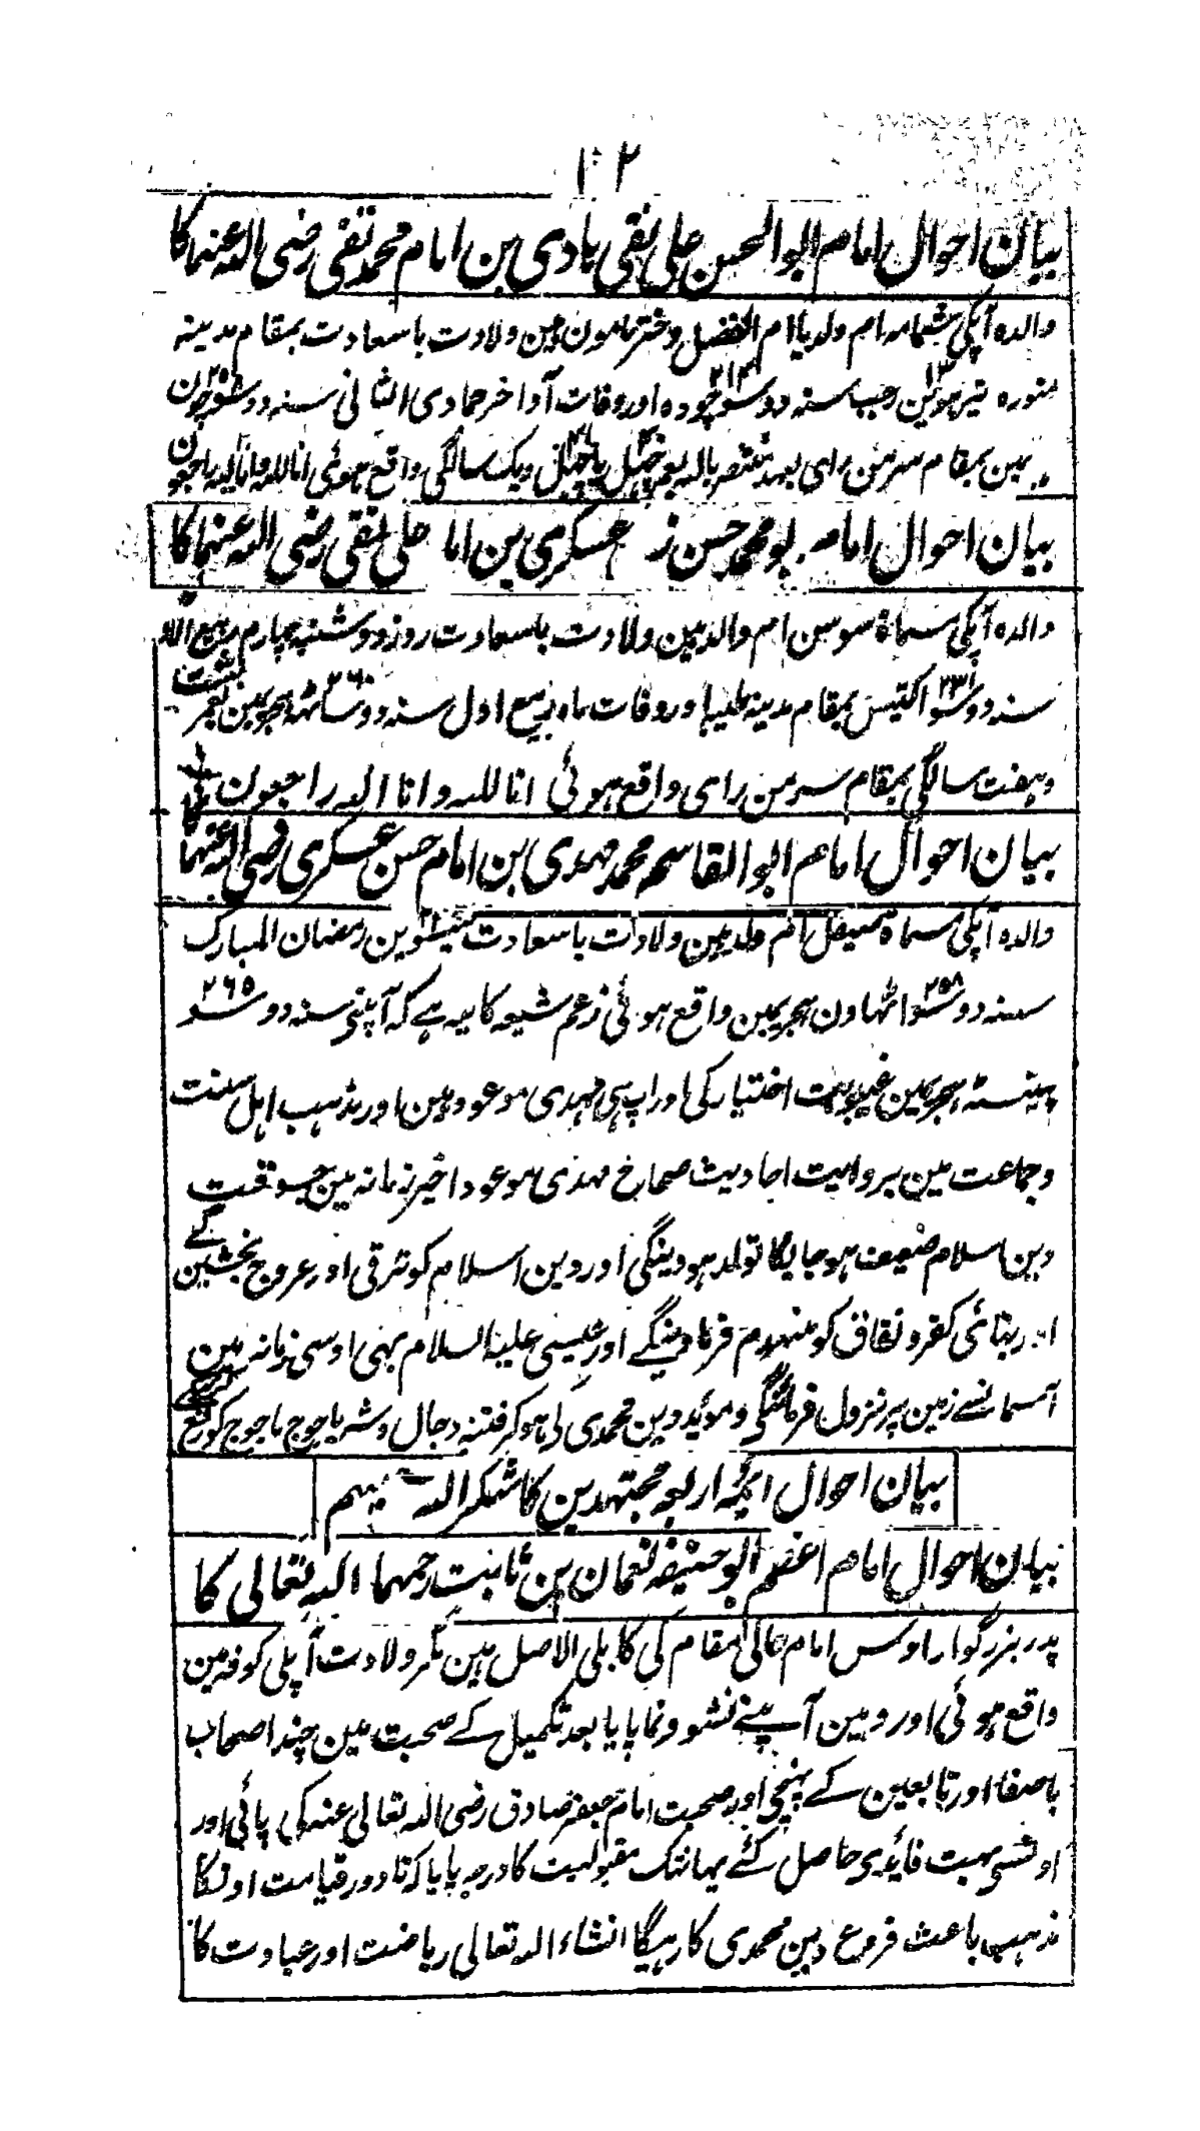 ۱۰۲
بیان احوال امام ابو الحسن علی نقی ہادی بن امام محمد تقی رضی اللہ عنہما کا
والدہ آپکی شمامہ ام ولد یا ام الفضل دختر مامون ہین ولادت باسعادت بمقام مدینہ
منورہ تیرہوئین رجب سنہ دوسو چودہ ۲۱۴ اور وفات آواخر جمادی الثانی سنہ دوسو چون
ہین بمقام سرمن رای بعہد منتصر باللہ بعمر چہل یا چہل ویک سالگی واقع ہوئی انا للہ وانا الیہ راجعون
بیان احوال امام ابو محمد حسن عسکری بن امام علی نقی رضی اللہ عنہما کا
والدہ آپکی مسماۃ سوسن ام ولد ہین ولادت باسعادت روز دوشنبہ چہارم ربیع
سنہ دوسو اکتیس ۲۳۱ بمقام مدینہ طیبہ اور وفات ماہ ربیع اول سنہ دوسو ساٹہہ ۲۶۰ ہجریمین بعمر بست
وہفت سالگی بمقام سرمن رای واقع ہوئی انا للہ وانا الیہ راجعون
بیان احوال امام ابو القاسم محمد مہدی بن امام حسن عسکری رضی اللہ عنہما
والدہ آپکی مسماۃ صیقل ام ولد ہین ولادت باسعادت تیئیسوین رمضان المبارک
سنہ دوسو اٹہاون ۲۵۸ ہجریمین واقع ہوئی زعم شیعہ کا یہ ہے کہ آپنی سنہ دو سو ۲۶۵
پینسٹہ ہجریمین غیبوبت اختیار کی اور آپ ہی مہدی موعود ہین اور مذہب اہل سنت
وجماعت مین بروایت احادیث صحاح مہدی موعود اخیر زمانہ مین جسوقت
دین اسلام ضعیف ہو جایگا تولد ہودینگی اور دین اسلام کو ترقی اور عروج بخشین کے
اور بنائی کفر و نفاق کو منہدم فرماوینگے اور عیسی علیہ السلام بہی اوسی زمانہ مین
آسمانسے زمین پر نزول فرمائنگی و موید دین محمدی کی ہو کر فتنہ دجال و شر یاجوج ماجوج کو رفع کرینگے
بیان احوال ایمہ اربعہ مجتہدین کا شکر اللہ سعیہم
بیان احوال امام اعظم ابو حنیفہ نعمان بن ثابت رحمہما اللہ تعالی کا
پدر بزرگوار اوس امام عالی مقام کی کابلی الاصل ہین مگر ولادت آپکی کوفہ مین
واقع ہوئی اور وہین آپنے نشو و نما پایا بعد تکمیل کے صحبت مین چند اصحاب
باصفا اور تابعین کے پہنچی اور صحبت امام جعفر صادق رضی اللہ تعالی عنہ کی پائی اور
اونسی بہت فائدی حاصل کئے یہانتک مقبولیت کا درجہ پایا کہ تا دور قیامت اونکا
مذہب باعث فروع دین محمدی کا رہیگا انشاء اللہ تعالی ریاضت اور عبادت کا